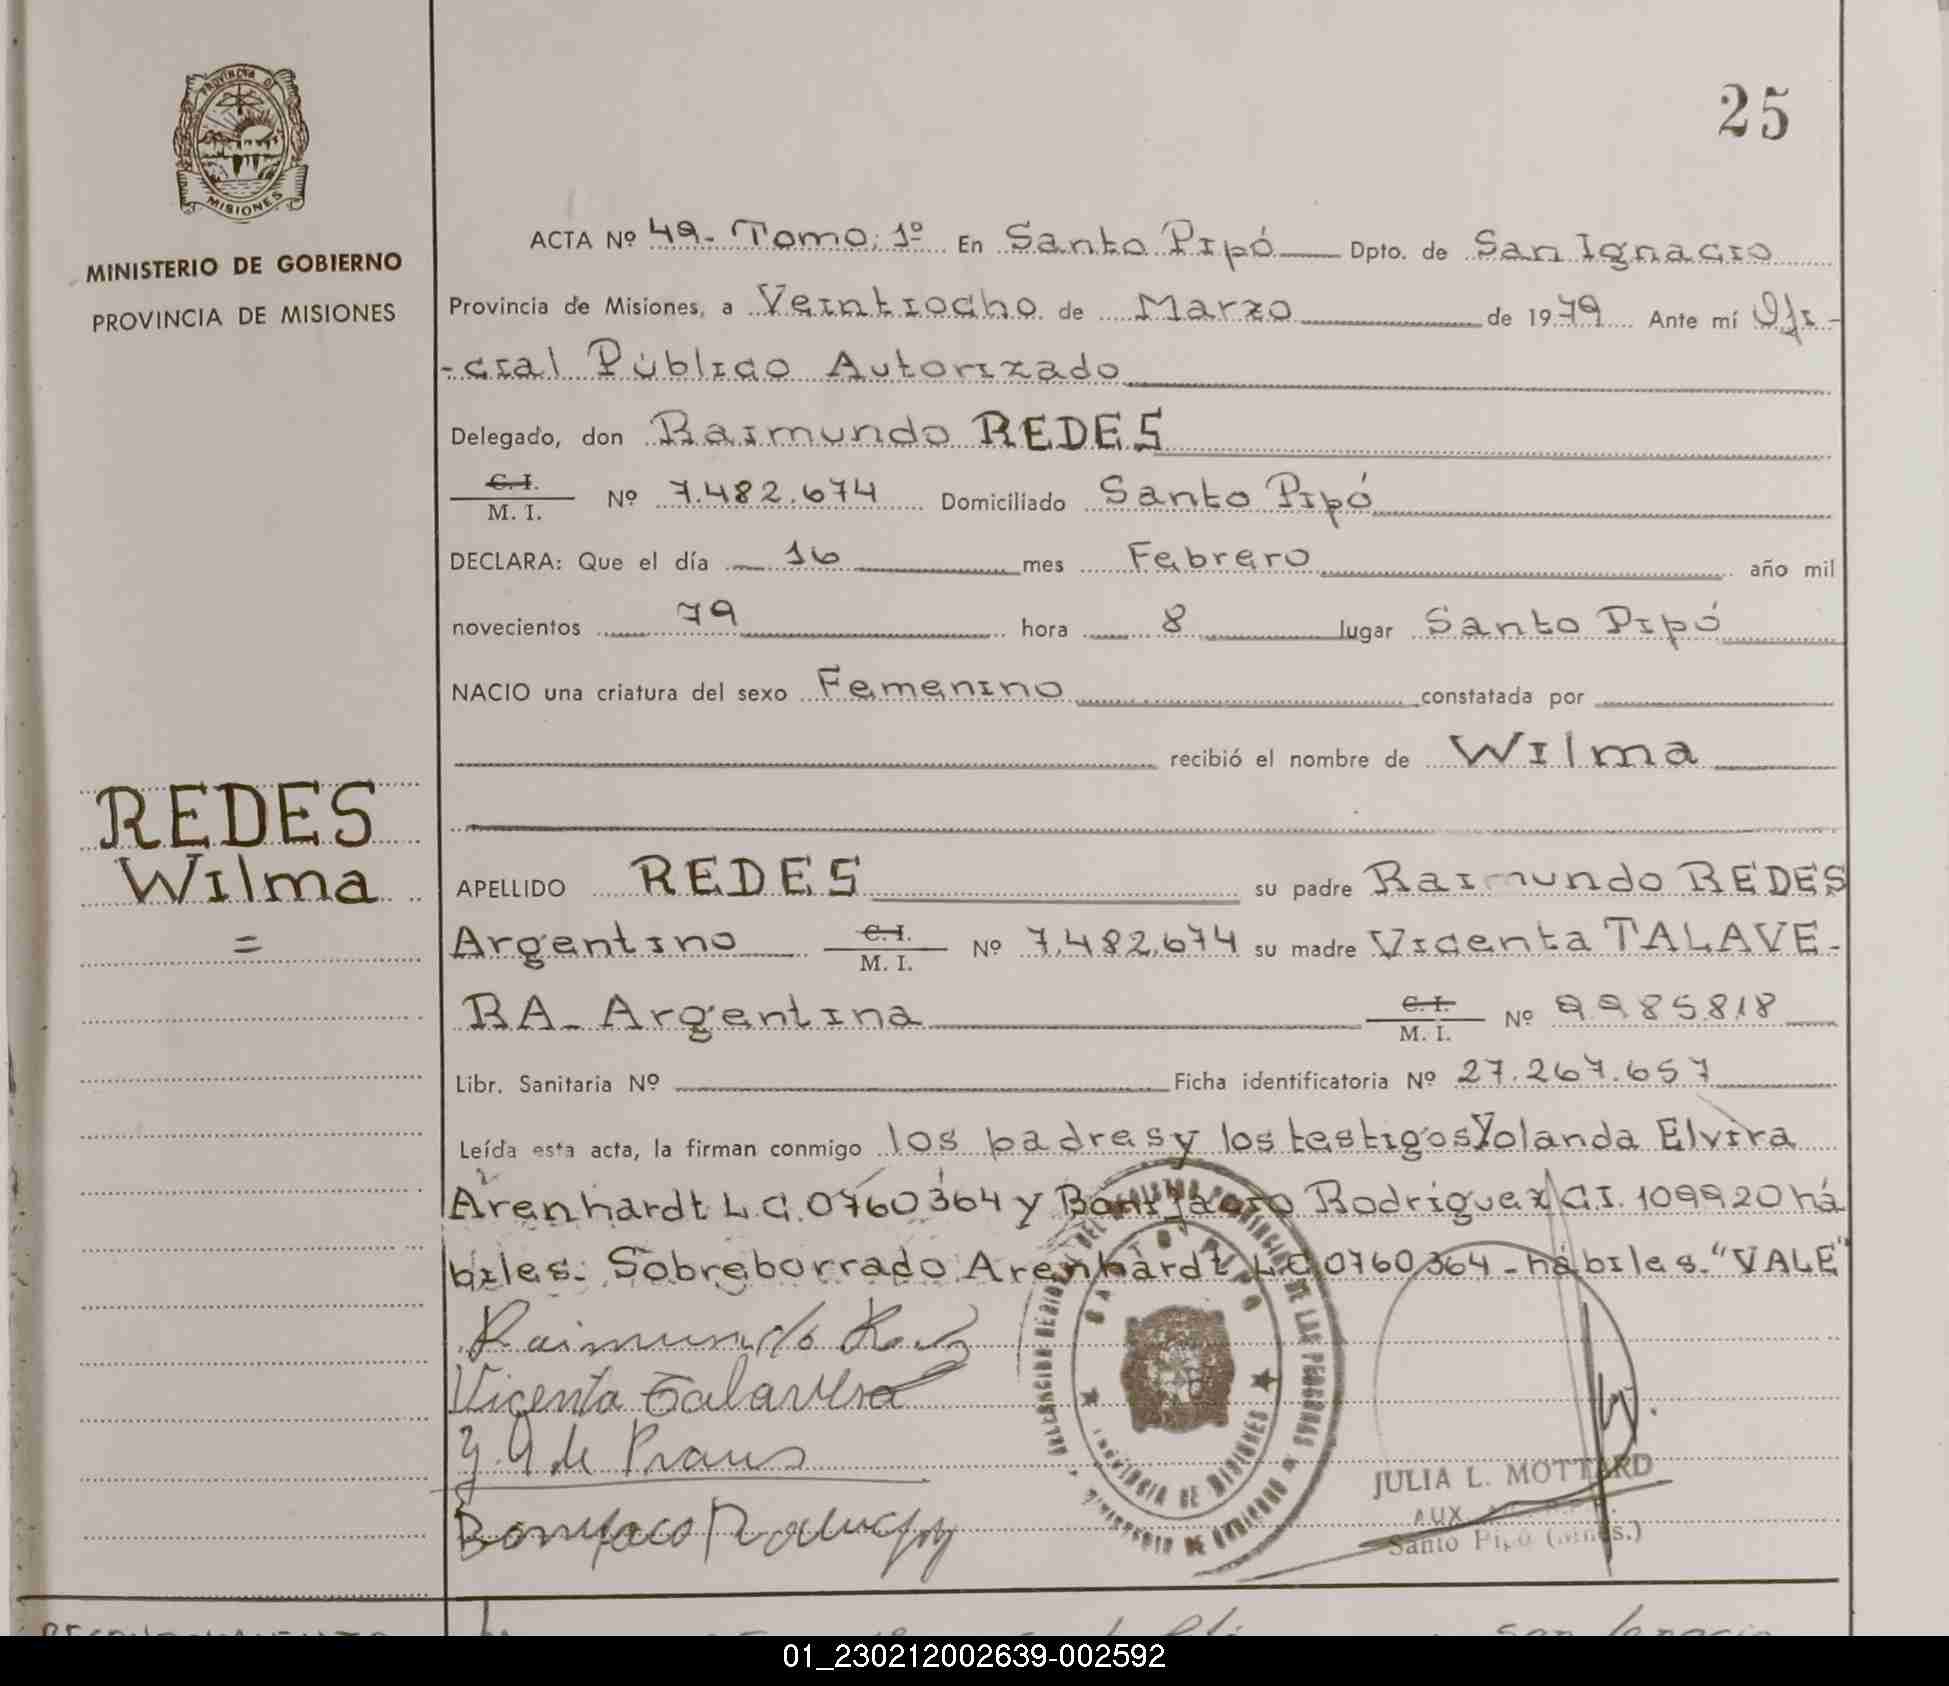 25
PROVINCIA DE
MISIONES
MINISTERIO DE GOBIERNO
PROVINCIA DE MISIONES
ACTA Nº 49- Tomo: 1º En Santo Pipó Dpto. de San Ignacio
Provincia de Misiones, a Veintiocho de Marzo de 1979 Ante mí Ofi-
-cial Público Autorizado
Delegado, don Raimundo REDES
C. I.
M. I. Nº 7.482.674 Domiciliado Santo Pipó
DECLARA: Que el día 16 mes Febrero año mil
novecientos 79 hora 8 lugar Santo Pipó
NACIO una criatura del sexo Femenino constatada por
recibió el nombre de Wilma
REDES
Wilma
=
APELLIDO REDES su padre Raimundo REDES
Argentino C. I. M. I. Nº 7.482.674 su madre Vicenta TALAVE-
RA- Argentina C. I. M. I. Nº 9985818
Libr. Sanitaria Nº Ficha identificatoria Nº 27.267.657
Leída esta acta, la firman conmigo los padres y los testigos Yolanda Elvira
Arenhardt L.C. 0760364 y Bonifacio Rodriguez C.I. 109920 há
biles. Sobreborrado Arenhardt L.C 0760364 - hábiles. "VALE"
Raimundo
Vicenta Talavera
Y. A de
Bonifaco
PROVINCIA DE MISIONES
JULIA L. MOTTARD
AUX.
Santo Pipó (Mnes.)
01_230212002639-002592